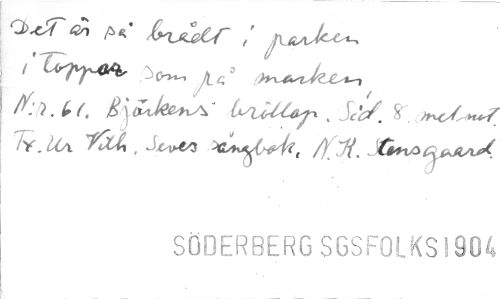 Det är så brådt i parken
i toppar som på marken
N:r. 61. Björkens bröllop. Sid. 8. mel. not.
Tr. Ur Vilh. Seves sångbok. N. K. Stensgaard.
SÖDERBERG SGSFOLKS1904